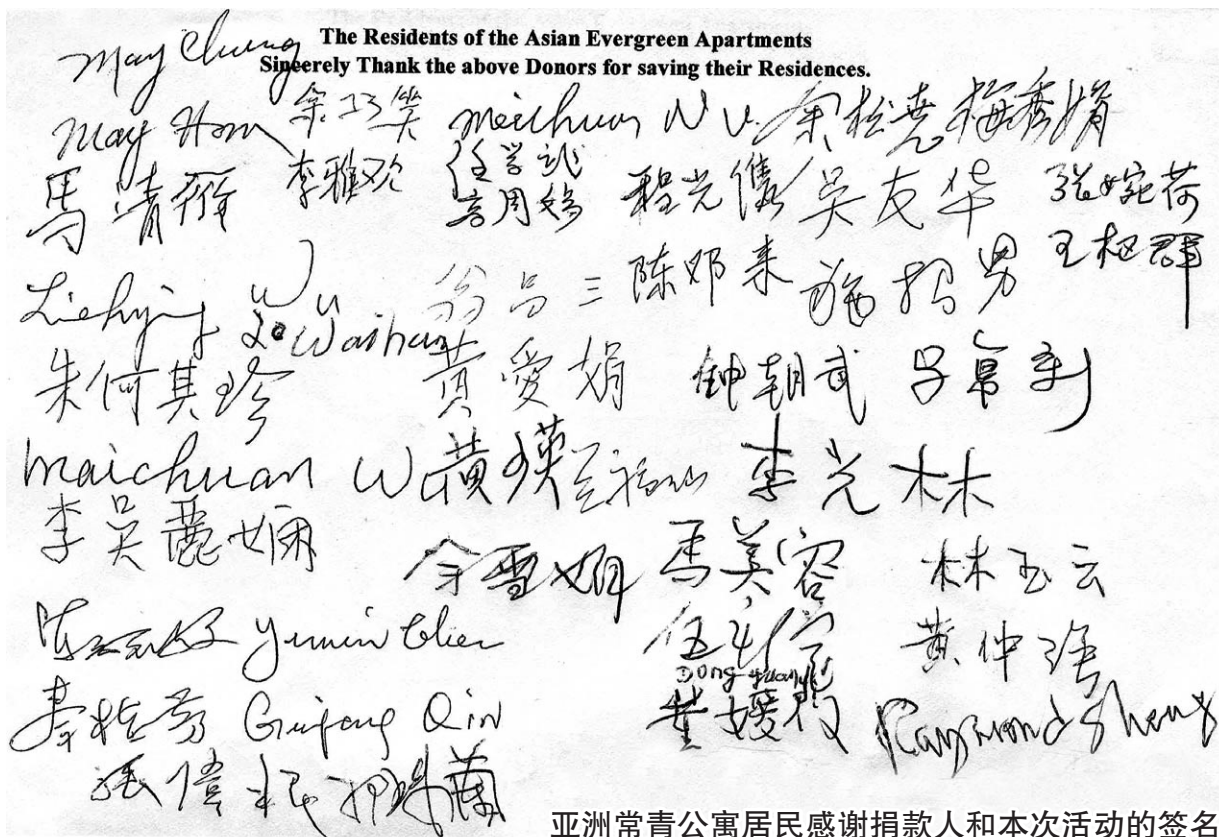 The Residents of the Asian Evergreen Apartments
Sincerely Thank the above Donors for saving their Residences.
May Chung
May Hom 余巧笑 meichuan Wu 余松尧 梅秀娟
馬清薇 李雅欢 任学 周 程光儀 吴友华 张婉荷
Wu 翁吕三 陈邓来 施招男 王枢群
朱何其珍 黄愛娟 钟朝武 吕
maichuan Wu 黄瑛 李光林
李吴麗嫻 余雪娟 馬美容 林玉云
yumin Chen 伍 黄仲
秦桂芳 Guifang Qin Dong 董媛 Raymond Sheng
張偉民
亚洲常青公寓居民感谢捐款人和本次活动的签名